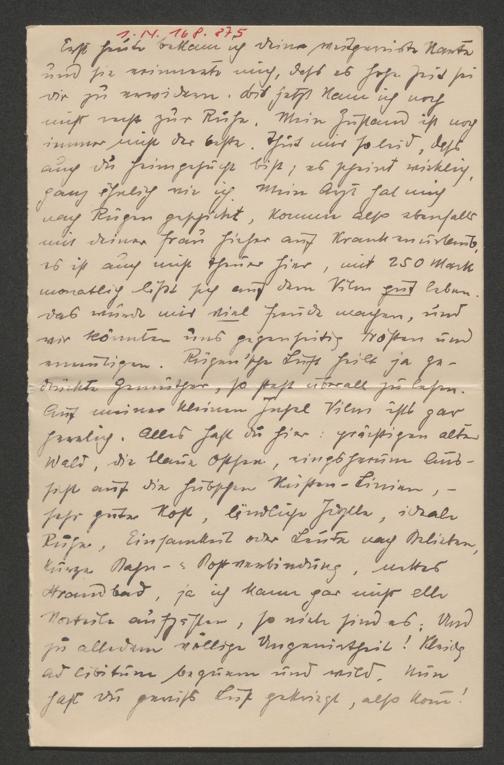 1.N.168.875
Erst heute bekam ich deine weitgereiste Karte
und sie erinnerte mich, daß es hohe Zeit sei
dir zu erwidern. Bis jetzt kam ich noch
nicht recht zur Ruhe. Mein Zustand ist noch
immer nicht der beste. Thut mir so leid, daß
auch du heimgesucht bist; es scheint wirklich,
ganz ähnlich wie ich. Mein Arzt hat mich
nach Rügen geschickt, komme also ebenfalls
mit deiner Frau hieher auf Krankenurlaub,
es ist auch nicht theuer hier, mit 250 Mark
monatlich läßt sich auf dem Vilm gut leben.
Das würde mir viel Freude machen, und
wir könnten uns gegenseitig trösten und
ermutigen. Rügen'sche Luft heilt ja ge-
drückte Gemüther, so steht überall zu lesen.
Auf meiner kleinen Insel Vilm ists gar
herrlich. Alles hast du hier: prächtigen alten
Wald, die blaue Ostsee, ringsherum Aus-
sicht auf die hübschen Küsten-Linien, -
sehr gute Kost, ländliche Idylle, ideale
Ruhe, Einsamkeit oder Leute nach Belieben,
kurze Bahn- & Postverbindung, nettes
Strandbad, ja ich kann gar nicht alle
Vorteile aufzählen, so viele sind es. Und
zu alledem völlige Ungeniertheit! Kleidg
ad libitum bequem und wild. Nun
hast du gewiß Lust gekriegt, also kom!